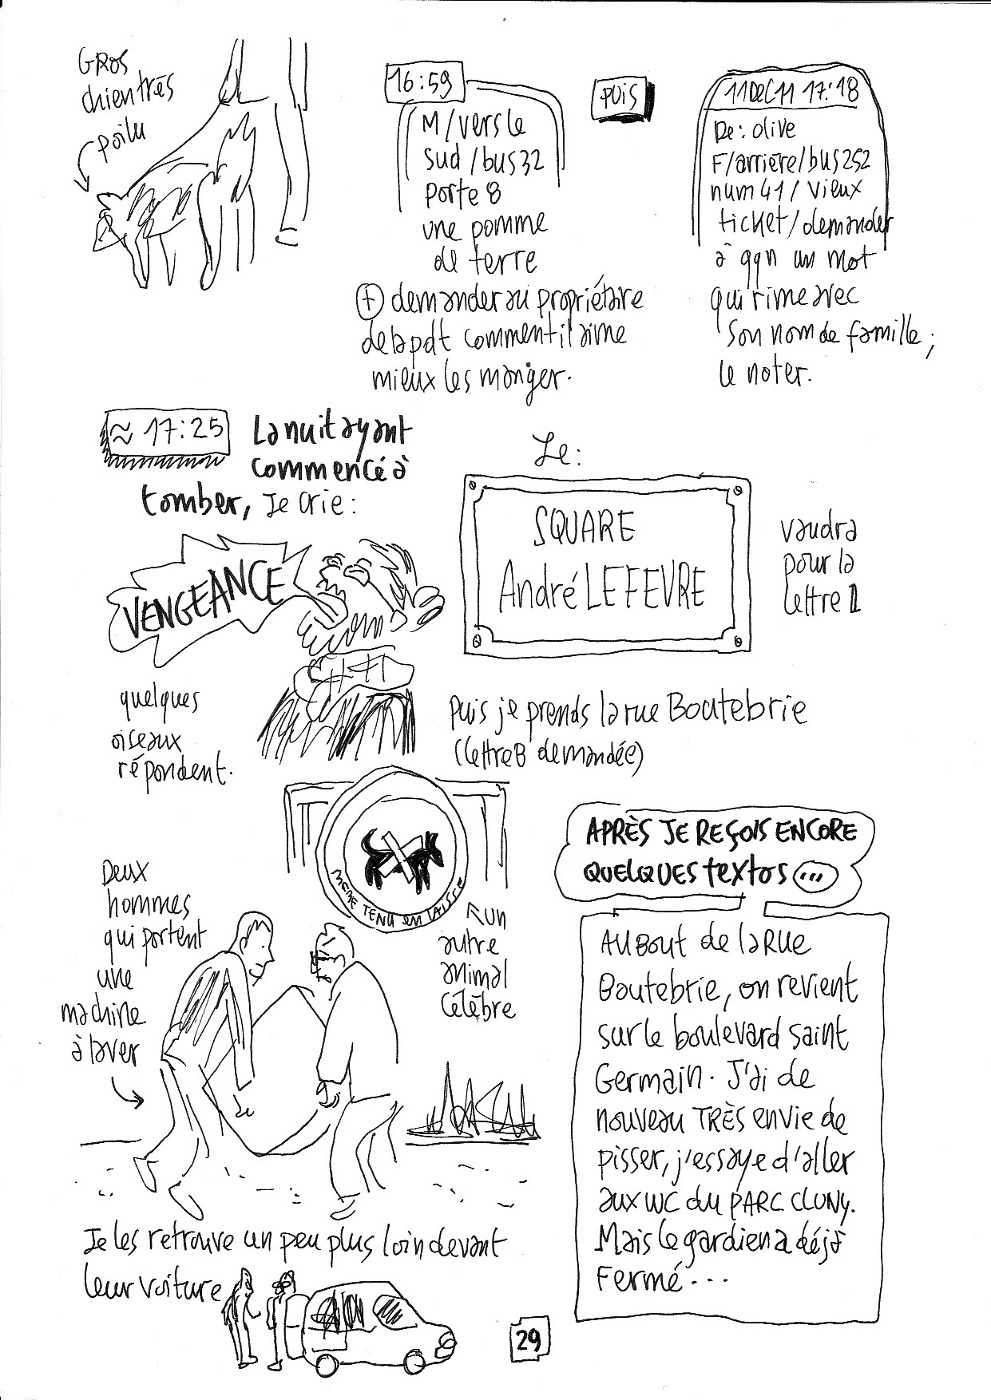 GROS
chien très
poilu
16:59
M/vers le
sud/bus 32
porte 8
une pomme
de terre
+ demander au propriétaire
de la pdt comment il aime
mieux les manger.
PUIS
11 DEC 11 17:18
De: olive
F/arrière/bus 252
num 41/ vieux
ticket/demander
à qqn un mot
qui rime avec
son nom de famille;
le noter.
≈ 17:25
La nuit ayant
commencé à
tomber, je crie:
VENGEANCE
quelques
oiseaux
répondent.
Le:
SQUARE
André LEFEVRE
vaudra
pour la
lettre L
Puis je prends la rue Boutebrie
(lettre B demandée)
MEME TENU EN LAISSE
un
autre
animal
célèbre
Deux
hommes
qui portent
une
machine
à laver
APRÈS JE REÇOIS ENCORE
QUELQUES textos ...
AU Bout de la Rue
Boutebrie, on revient
sur le boulevard saint
Germain. J'ai de
nouveau TRÈS envie de
pisser, j'essaye d'aller
aux WC du PARC CLUNY.
Mais le gardien a déjà
fermé...
Je les retrouve un peu plus loin devant
leur voiture
29